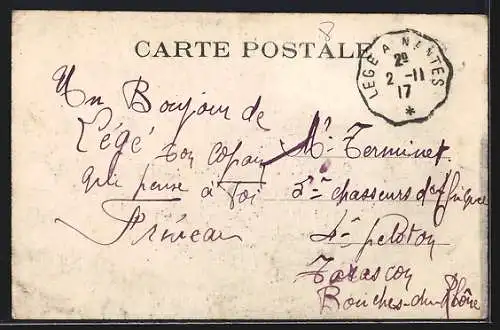 8
CARTE POSTALE
LEGE A NANTES
2º
2-11
17
*
Un Bonjour de
Légé ton copain
qui pense à toi
Mr Terminet
chasseurs d'Afrique
4e peloton
Tarascon
Bouches-du-Rhône